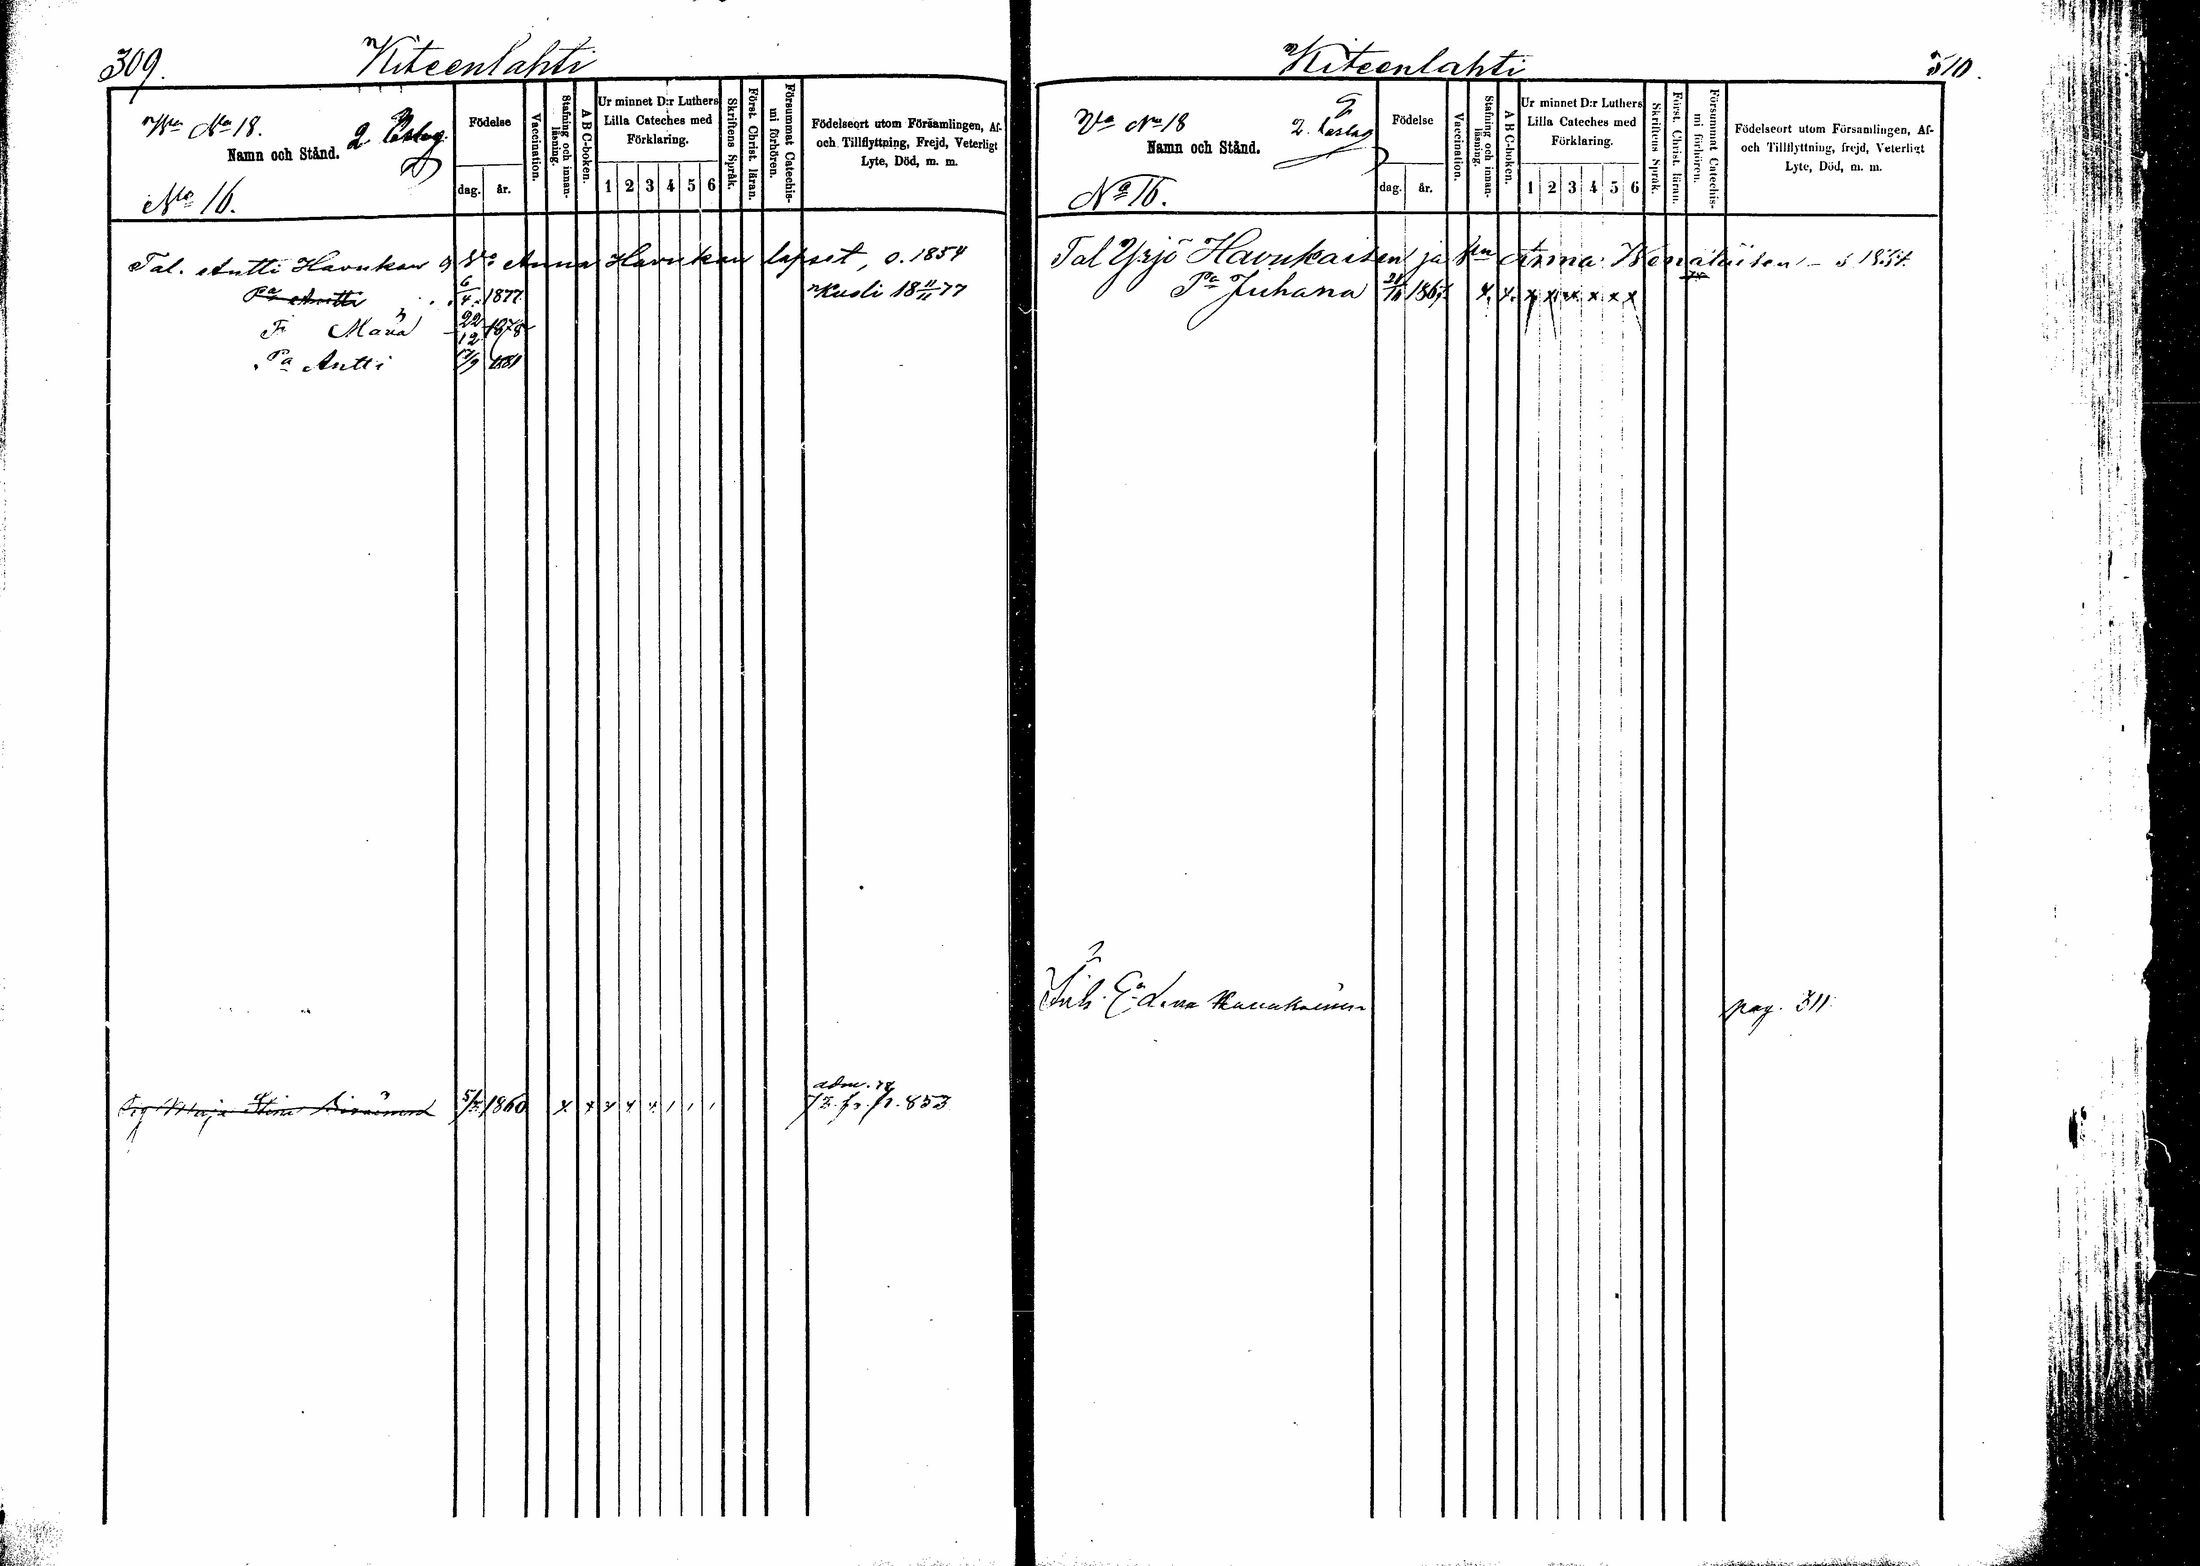 309.
Kiteenlahti
Wa No 18.
2
Födelse
Vaccination.
Stafning och innan-
läsning.
A B C-boken.
Ur minnet D:r Luthers
Lilla Cateches med
Förklaring.
Skriftens Språk.
Först. Christ. läran.
Försummat Catechis-
mi förhören.
Födelseort utom Församlingen, Af-
och Tillflyttning, Frejd, Veterligt
Lyte, Död, m. m.
Namn och Stånd.
dag. år.
1 2 3 4 5 6
No 16.
Tal. Antti Havukan Anna Havukan lapset, s. 1854
Pa Antti 6/4 1877 Kuoli 18 11/11 77
Maria 22/12 1878
Pa Antti 17/9 1881
adm. 78
Maja Stina 1860 x x x x x 73. fr. p. 853
Kiteenlahti
310.
Va No 18
2.
Födelse
Vaccination.
Stafning och innan-
läsning.
A B C-boken.
Ur minnet D:r Luthers
Lilla Cateches med
Förklaring.
Skriftens Språk.
Först. Christ. läran.
Försummat Catechis-
mi förhören.
Födelseort utom Församlingen, Af-
och Tillflyttning, frejd, Veterligt
Lyte, Död, m. m.
Namn och Stånd.
dag. år.
1 2 3 4 5 6
No 16.
Tal Yrjö Havukaisen ja Anna
Pa Juhana 1867 x. x. x x x x x x
pag. 311.